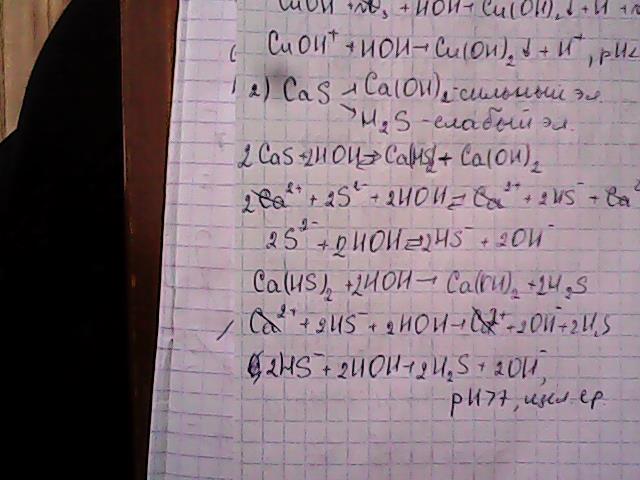 CuOH + HOH → Cu(OH)₂↓ + H
CuOH⁺ + HOH → Cu(OH)₂↓ + H⁺, pH<
2) CaS → Ca(OH)₂-сильный эл.
↘ H₂S -слабый эл.
2CaS+2HOH⇄Ca(HS)₂+ Ca(OH)₂
2Ca²⁺ + 2S²⁻ + 2HOH ⇄ Ca²⁺ + 2HS⁻ + Ca²
2S²⁻ + 2HOH⇄2HS⁻ + 2OH⁻
Ca(HS)₂ +2HOH → Ca(OH)₂ +2H₂S
Ca²⁺ + 2HS⁻ + 2HOH→Ca²⁺+2OH⁻+2H₂S
2HS⁻+2HOH→2H₂S + 2OH⁻,
pH>7, щел. ср.